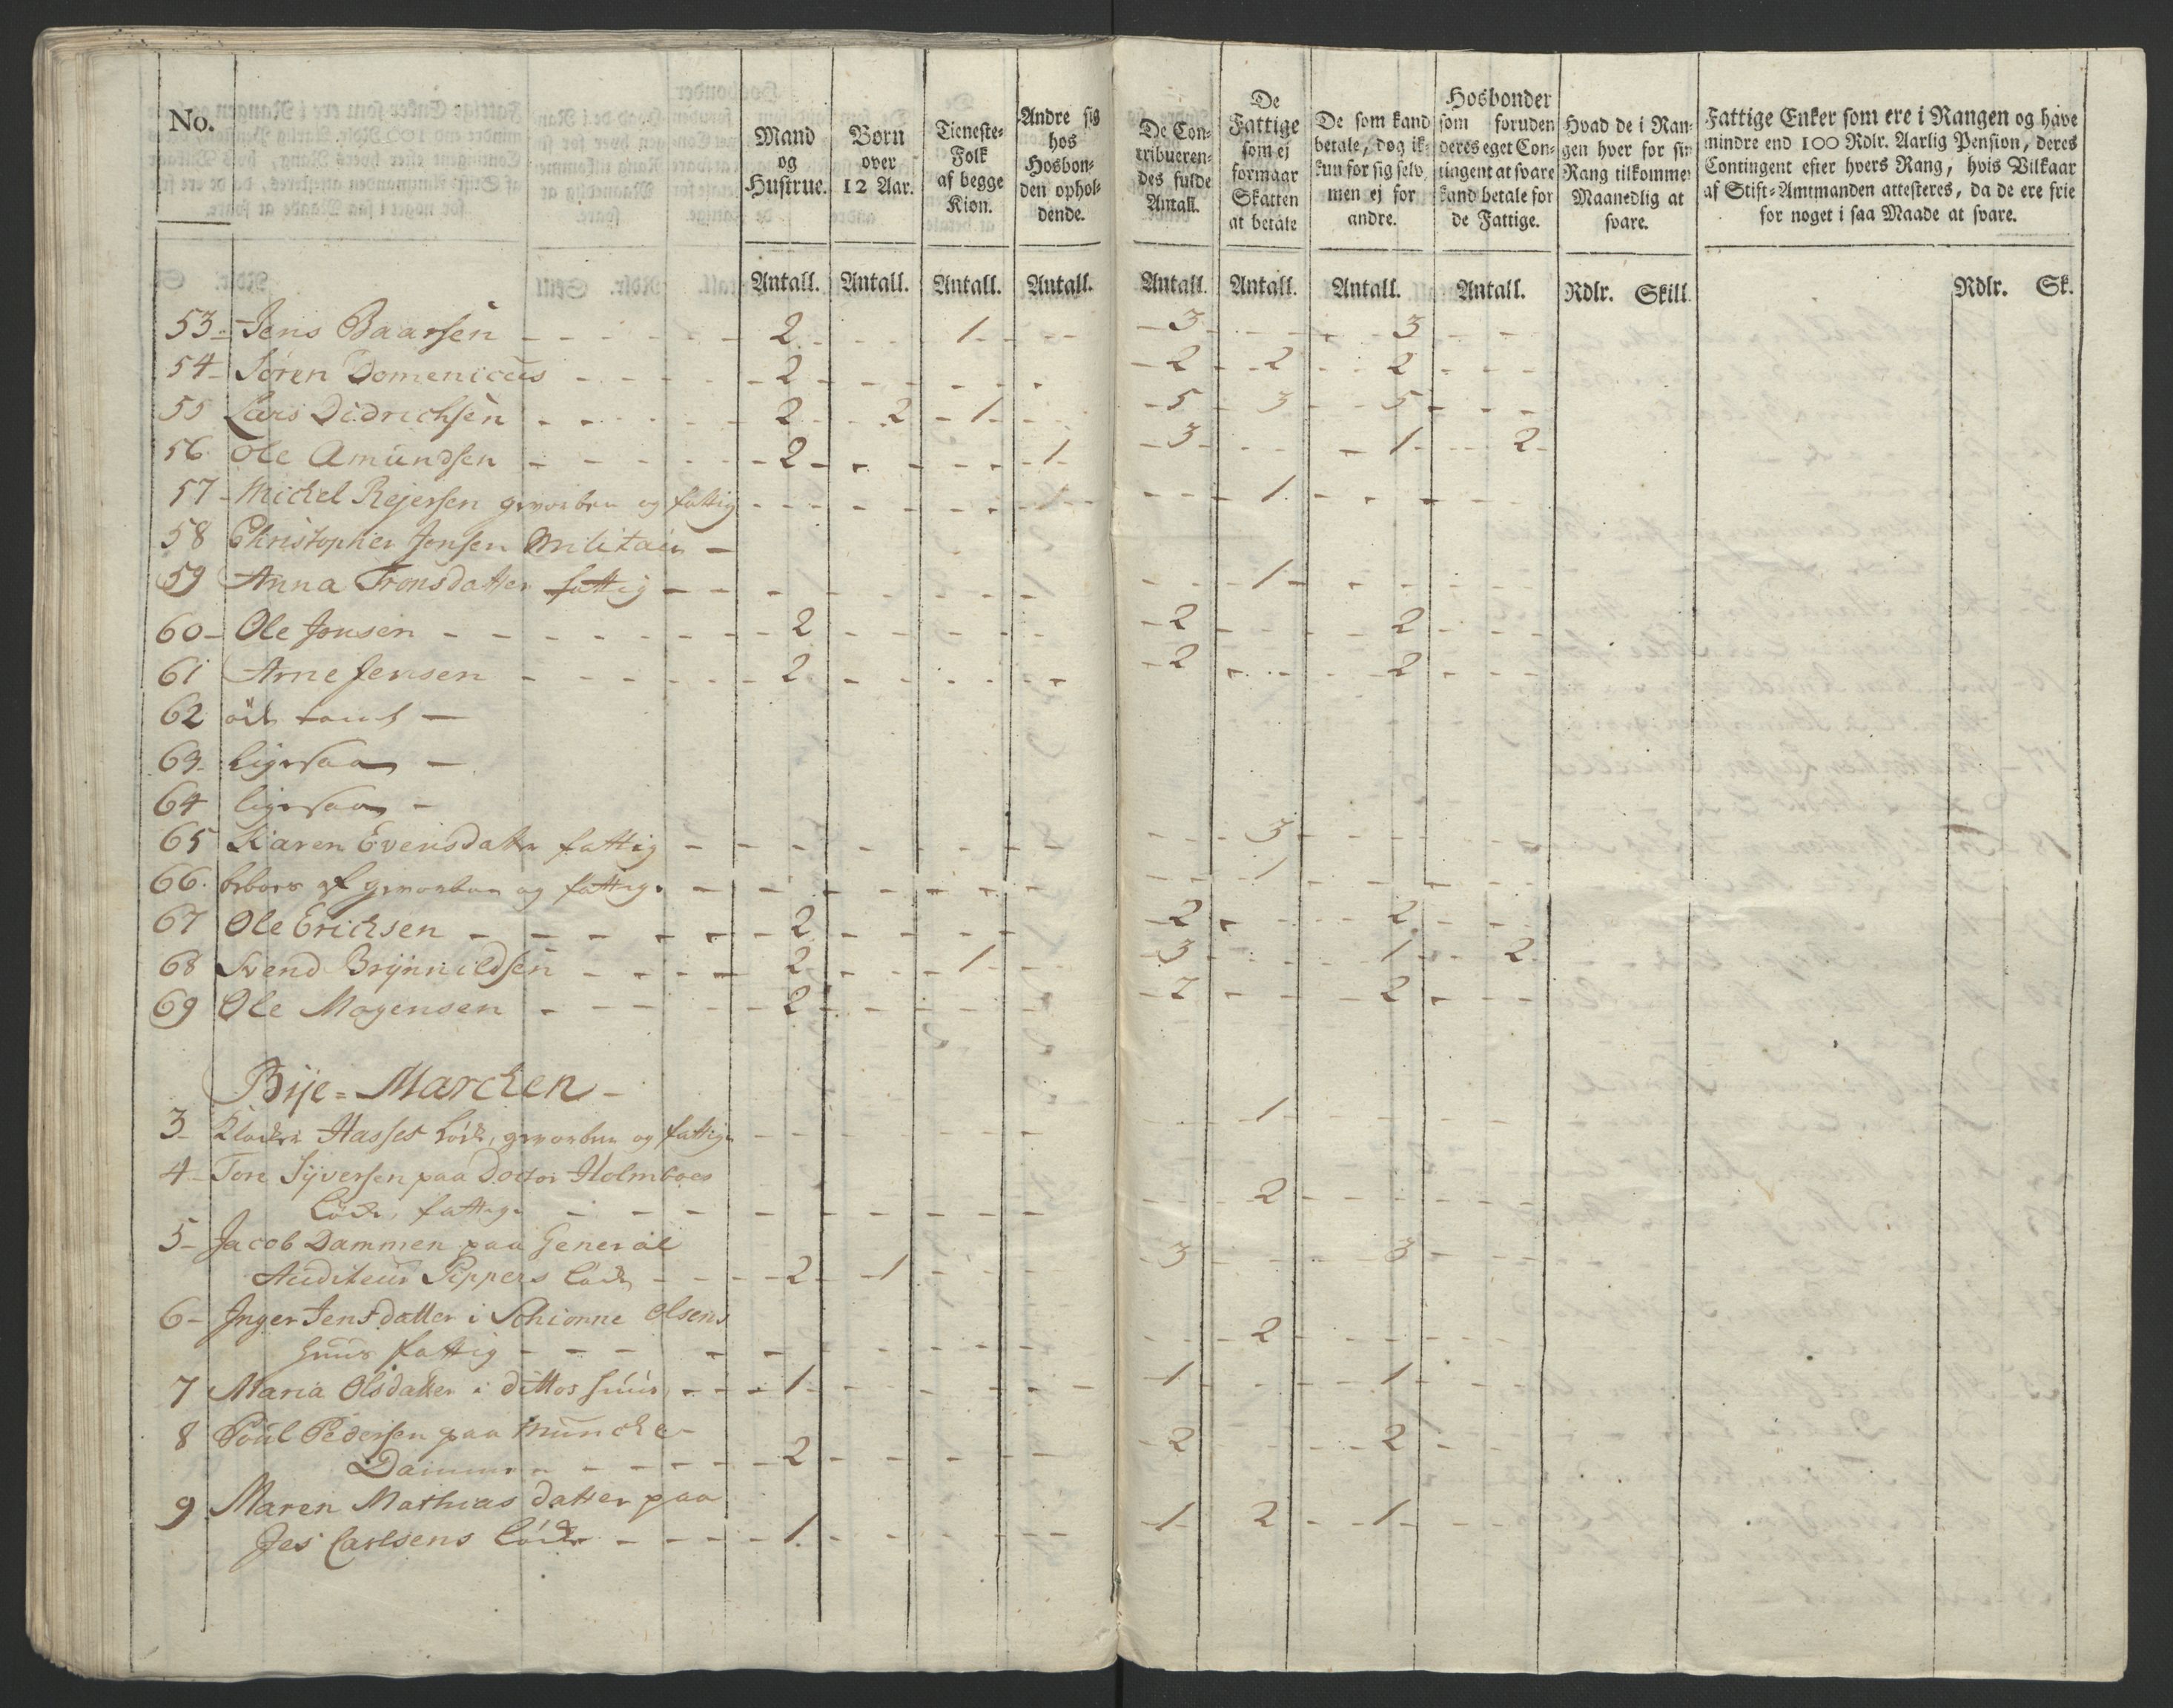 No.
Mand og Hustrue.
Børn over 12 Aar.
Tieneste-Folk af begge Kiøn.
Andre sig hos Hosbonden opholdende.
De Contribuerendes fulde Antall.
De Fattige som ej formaar Skatten at betale
De som kand betale, dog ikkun for sig selv, men ej for andre.
Hosbonder som foruden deres eget Contingent at svare kand betale for de Fattige.
Hvad de i Rangen hver for sin Rang tilkommer Maanedlig at svare.
Fattige Enker som ere i Rangen og have mindre end 100 Rdlr. Aarlig Pension, deres Contingent efter hvers Rang, hvis Vilkaar af Stift-Amtmanden attesteres, da de ere frie for noget i saa Maade at svare.
Antall. Antall. Antall. Antall. Antall. Antall. Antall. Antall. Rdlr. Skill. Rdlr. Sk.
53 - Jens Baarsen - 2 - 1 - 3 - 3
54 - Søren Domenicus - 2 - 2 - 2 - 2
55 Lars Didrichsen - 2 - 2 - 1 - 5 - 3 - 5
56 Ole Amundsen - 2 - 1 - 3 - 1 - 2
57 - Mickel Rejersen gevorben og fattig - 1
58 Christopher Jonsen Militair -
59 Anna Tronsdatter fattig - 1
60 - Ole Jonsen - 2 - 2 - 2
61 Arne Jensen - 2 - 2 - 2
62 øde tomt -
63 - ligesaa -
64 ligesaa -
65 Karen Evensdatter fattig - 3
66. beboes af gevorben og fattige - 1
67 Ole Ericksen - 2 - 2 - 2
68 Svend Brÿnnildsen - 2 - 1 - 3 - 1 - 2
69 Ole Mogensen - 2 - 2 - 2
Bÿe-Marcken -
3 - Hasses Løcke, gevorben og fattige - 1
4 - Tore Sÿversen paa Doctor Holmboes
Løcke, fattige - 2
5 - Jacob Dammen paa General
Auditeur Pippers Løcke - 2 - 1 - 3 - 3
6 - Inger Jensdatter i Olsens
Huus fattig - 2
7 Maria Olsdatter i dittos huus - 1 - 1 - 1
8 Poul Pedersen paa Muncke-
Dammen - 2 - 2 - 2
9 Maren Mathias datter paa
Jes Carlsens Løcke - 1 - 1 2 - 1